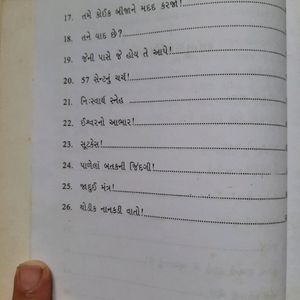 17. તમે કોઈક બીજાને મદદ કરજો!
18. તને યાદ છે?
19. જેની પાસે જે હોય તે આપે!
20. 57 સેન્ટનું ચર્ચ!
21. નિઃસ્વાર્થ સ્નેહ
22. ઈશ્વરનો આભાર!
23. સૂટકેસ!
24. પાળેલાં બતકની જિંદગી!
25. જાદુઈ મંત્ર!
26. થોડીક નાનકડી વાતો!